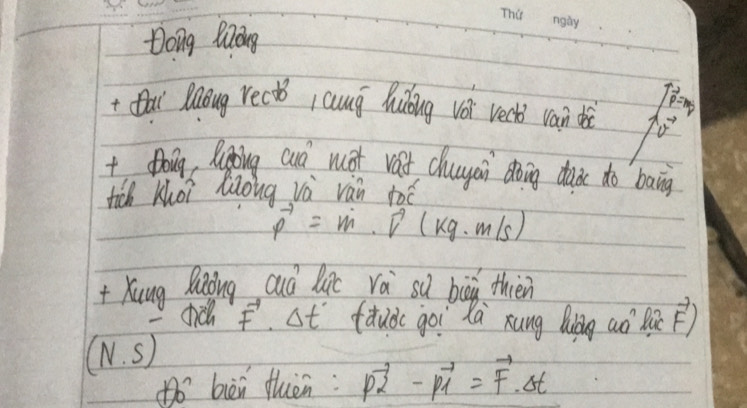 Thứ ngày
Động lượng
+ Đại lượng vectơ, cùng hướng với vectơ vận tốc
p⃗=mv⃗
v⃗
+ Động lượng của một vật chuyển động được đo bằng
tích khối lượng và vận tốc
p⃗ = m . v⃗ (kg.m/s)
+ Xung lượng của lực và sự biến thiên
- tích F⃗ . Δt (được gọi là xung lượng của lực F⃗)
(N.S)
Độ biến thiên : p⃗2 - p⃗1 = F⃗.Δt